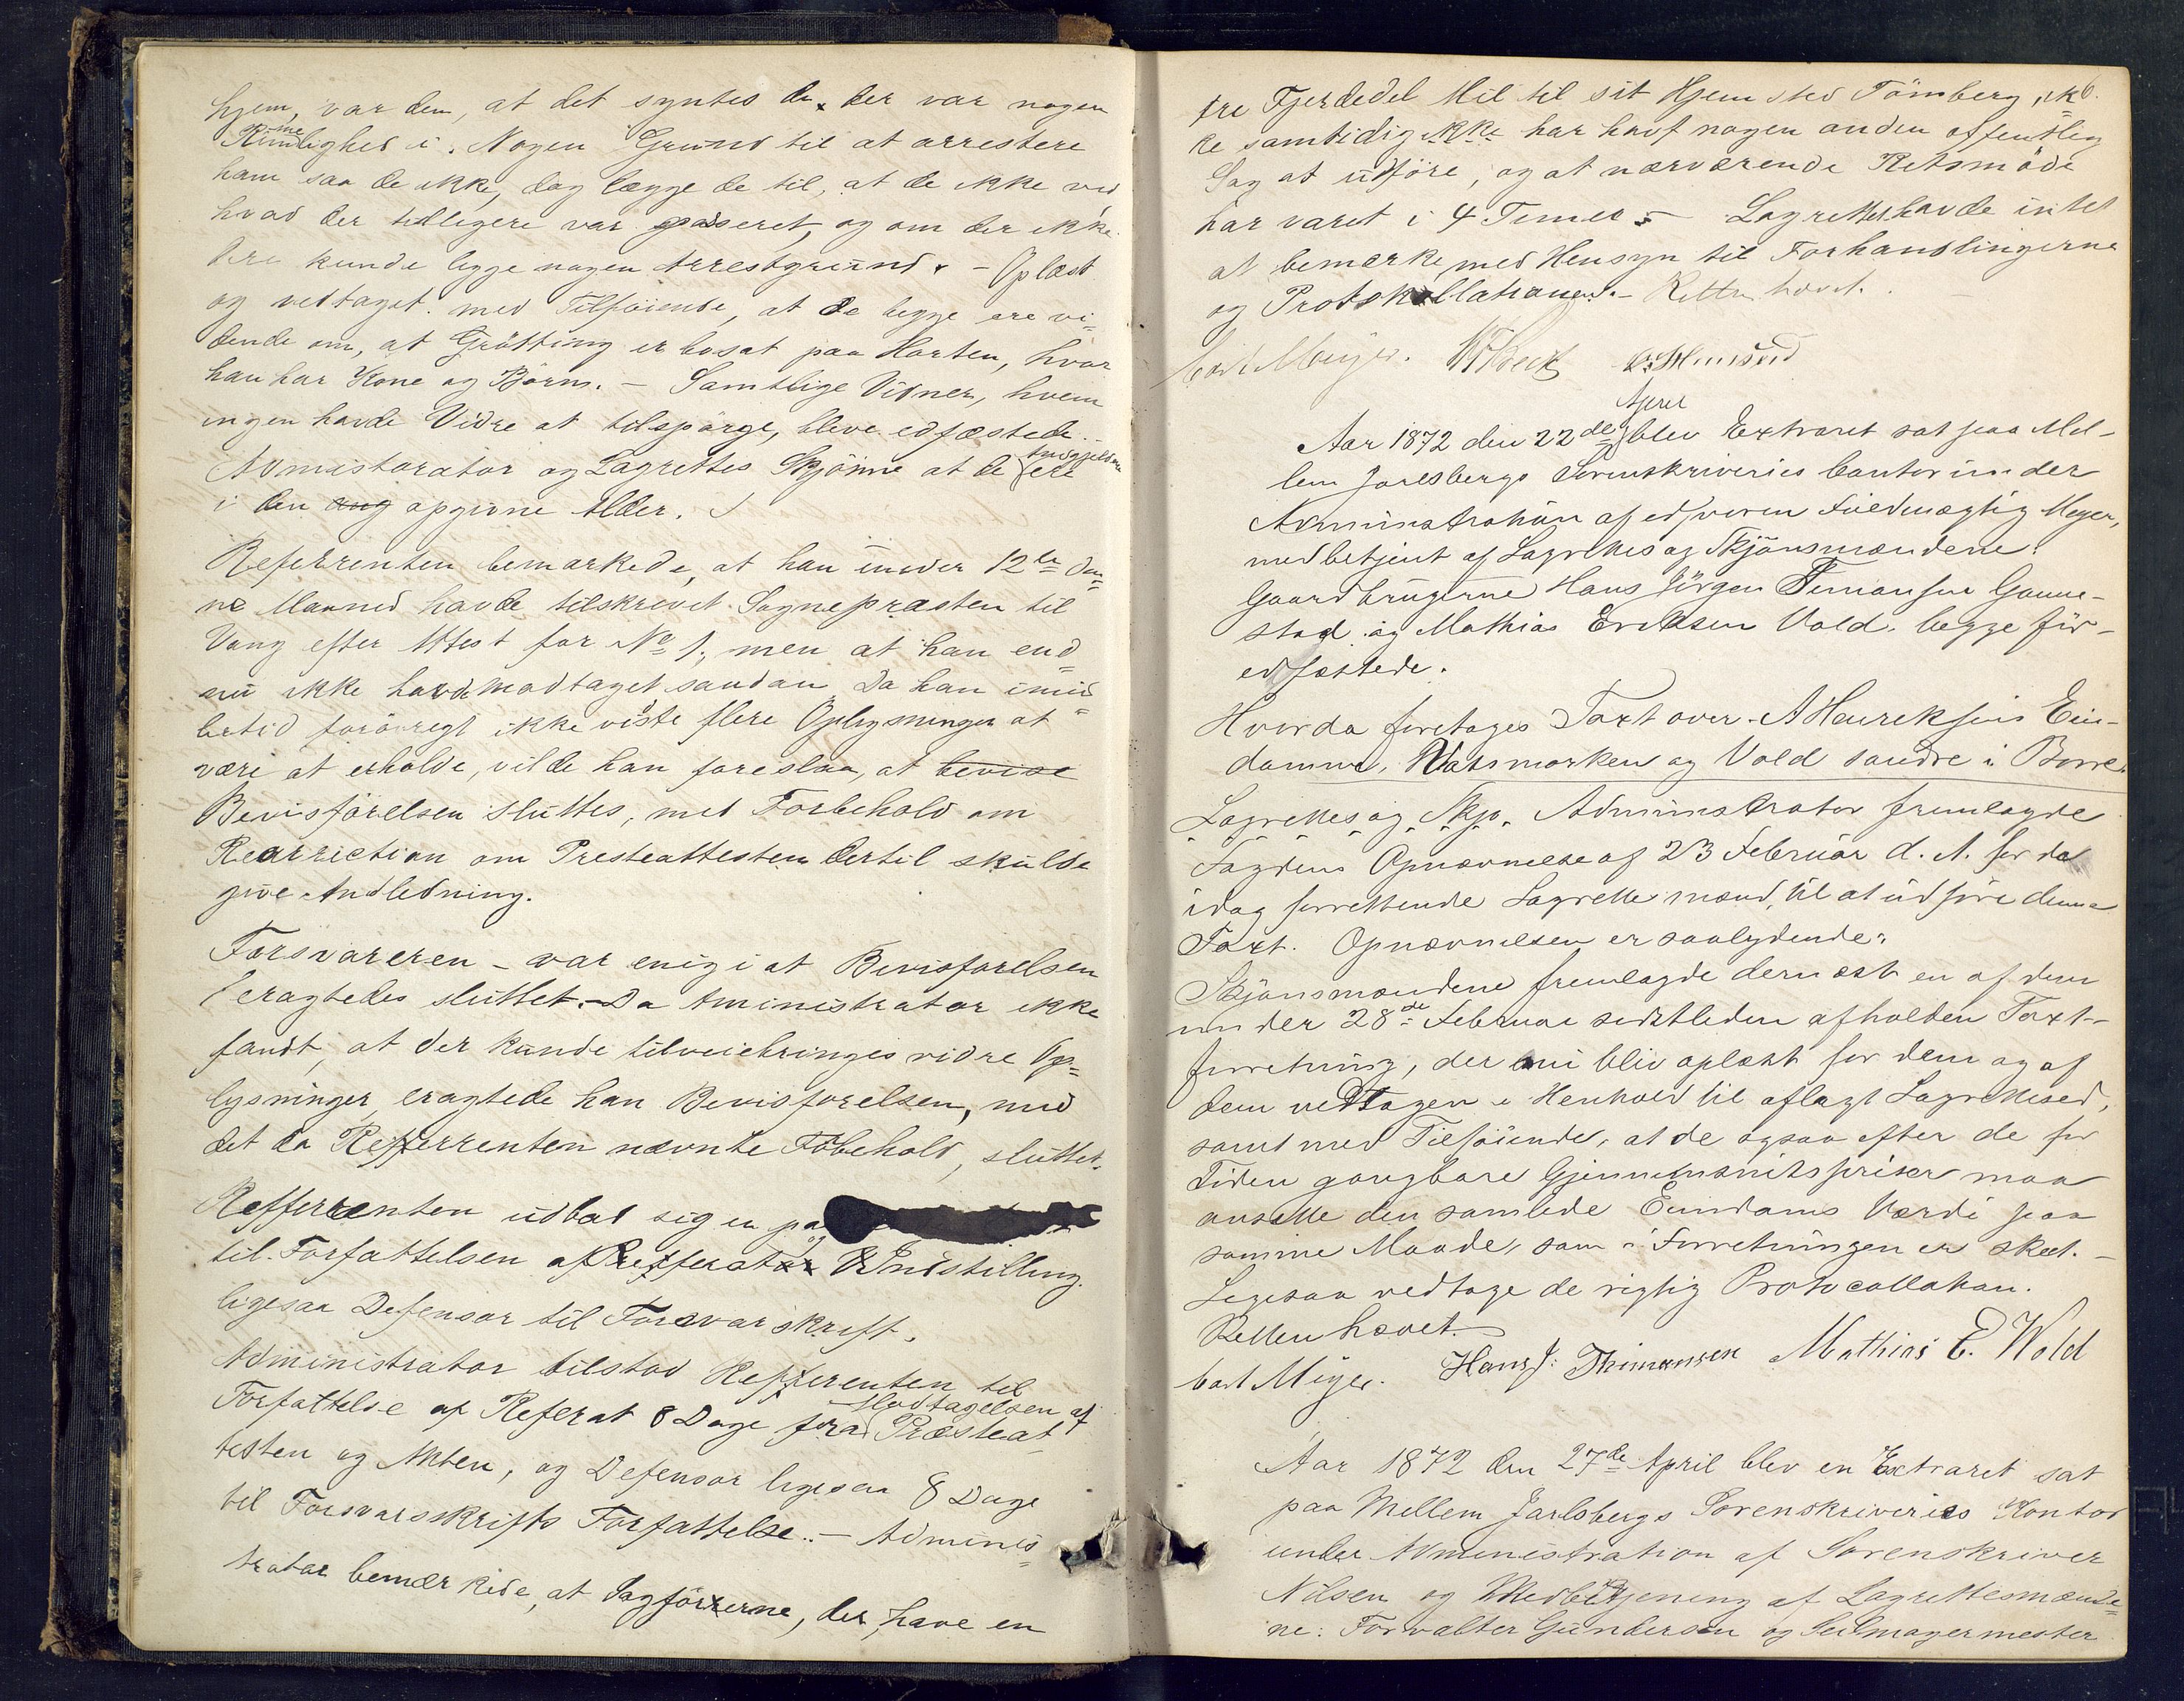 hjem, var den, at det syntes de, der var nogen
Rimelighed i. Nogen Grund til at arrestere
ham saa de ikke, dog lægge de til, at de ikke ved
hvad der tidligere var passeret, og om der ikke
deri kunde ligge nogen Arrestgrund. - Oplæst
og vedtaget med Tilføiende, at de begge ere vi=
dende om, at Grötting er bosat paa Horten, hvor
han har Kone og Börn. - Samtlige Vidner, hvem
ingen havde Vidre at tilspörge, bleve edfæstede. -
Administrator og Lagrettes Skjönne at de Angjeldende ere
i den opgivne Alder.
Referenten bemærkede, at han under 12te den=
ne Maaned havde tilskrevet Sognepræsten til
Vang efter Attest for No 1, men at han end=
nu ikke havde modtaget saadan. Da han imid=
lertid forövregt ikke viste flere Oplysninger at
være at erholde, vilde han foreslaa, at bevise
Bevisförelsen sluttes, med Forbehold om
Rearriction om Presteattesten dertil skulde
give Andledning.
Forsvareren - var enig i at Bevisförelsen
eragtedes sluttet. - Da Aministrator ikke
fandt, at der kunde tilveiebringes vidre Op=
lysninger, eragtede han Bevisforelsen, med
det da Refferrenten nævnte Fobehold, sluttet.
Refferrenten udbad sig en pa
til Forfattelsen af Refferat og Indstilling
ligesaa Defensor til Forsvarskrift.
Administrator tilstod Refferenten til
Forfattelse af Referat 8 Dage fra Modtagelsen af Præsteat
testen og Akten, og Defensor ligesaa 8 Dage
til Forsvarsskrifts Forfattelse. - Adminis=
trator bemærkede, at Sagförerne, der have en
tre Fjerdedel Mil til sit Hjemsted Tömberg, ik 6.
ke samtidig ikke har havt nogen anden offentlig
Sag at udföre, og at nærværende Retsmöde
har varet i 4 Timer. - Lagrettet havde intet
at bemærke med Hensyn til Forhandlingerne
og Protokollationen. - Retten hævet.
Carl Meyer.
Aar 1872 den 22de April blev Extraret sat paa Mel-
lem Jarlsbergs Sorenskriveries Contor under
Administration af edsvoren Fuldmægtig Meyer,
medbetjent af Lagrettes og Skjönsmændene:
Gaardbrugerne Hans Jörgen Timansen Gaune-
stad og Mathias Eriksen Vold, begge för-
edfæstede.
Hvorda foretages Taxt over A Henriksens Eien-
domme, Vatsmarken og Vold søndre i Borre.
Lagrettes og Skjø. Administrator fremlagde
Fogdens Opnævnelse af 23 Februar d. A. for de
idag forrettende Lagrettesmænd, til at udføre denne
Taxt. Opnævnelsen er saalydende:
Skjönsmændene fremlagde dernæst en af dem
under 28de Februar sidstleden afholden Taxt-
forretning, der nu blev oplæst for dem og af
dem vedtagen i Henhold til aflagt Lagrettesed,
samt med Tilföiende, at de ogsaa efter de for
Tiden gangbare Gjennemsnitspriser maa
ansætte den samlede Eiendoms Værdi paa
samme Maade, som i Forretningen er skeet. -
Ligesaa vedtage de rigtig Protocollation.
Retten hævet.
Carl Meyer. Hans J. Thimansen Mathias E. Wold
Aar 1872 den 27de April blev en Extraret sat
paa Mellem Jarlsbergs Sorenskriveries Kontor
under Administration af Sorenskriver
Nilsen og Medbetjening af Lagrettesmænde=
ne: Forvalter Gundersen og Seilmagermester